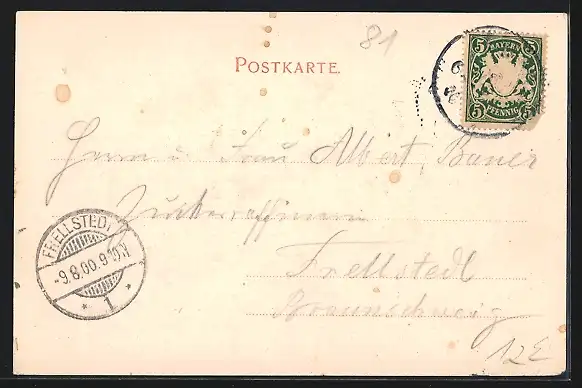 81
POSTKARTE.
5 BAYERN 5
5 PFENNIG 5
Herrn u Frau Albert Bauer
Zuckerraffinerie
Frellstedt
Braunschweig
FRELLSTEDT
-9.8.00.9-10V.
* 1 *
12E